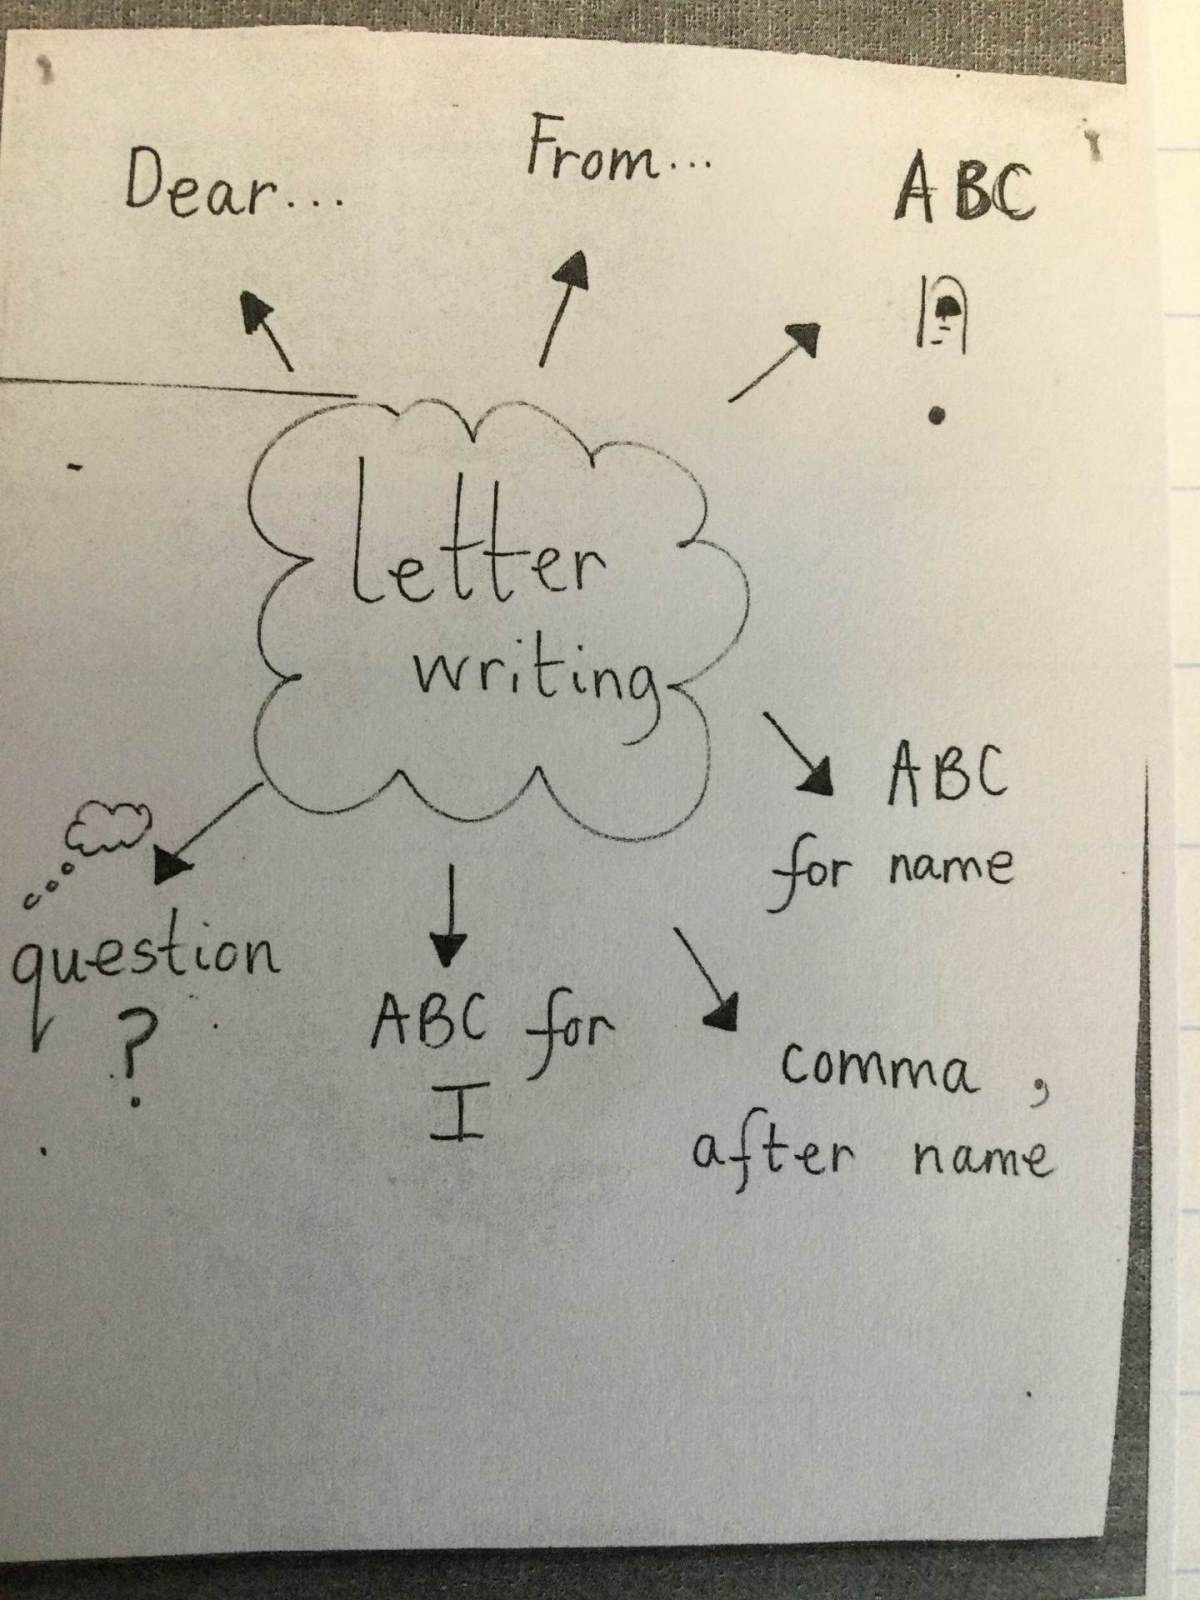 Dear...
From...
ABC
.
letter
writing
ABC
for name
question
?
ABC for
I
comma ,
after name